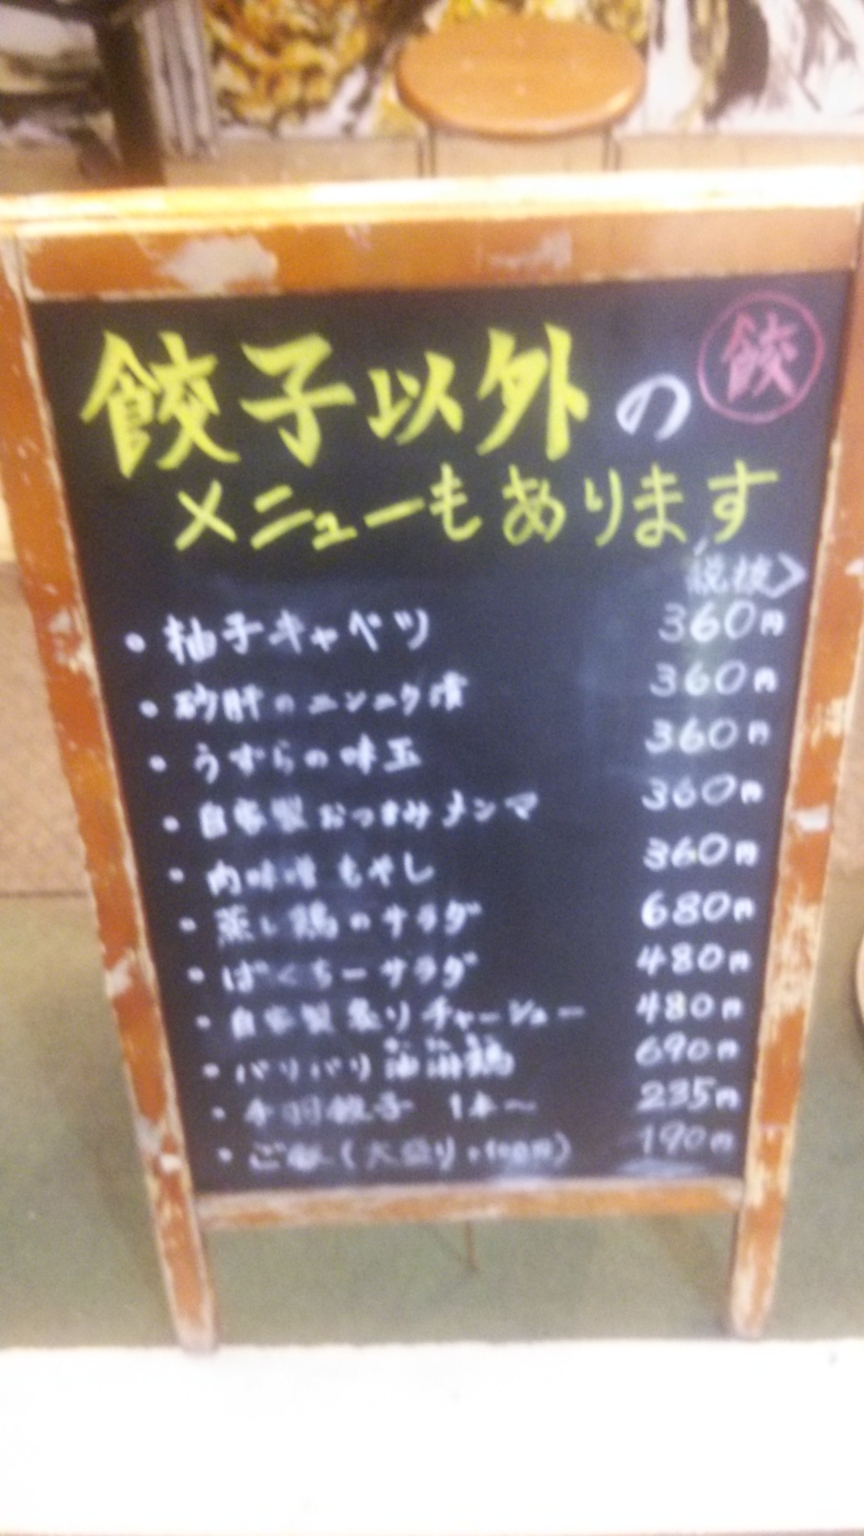 餃子以外の 餃
メニューもあります
税抜>
・柚子キャベツ 360円
・砂肝のニンニク漬 360円
・うずらの味玉 360円
・自家製おつまみメンマ 360円
・肉味噌もやし 360円
・蒸し鶏のサラダ 680円
・ぱくちーサラダ 480円
・自家製炙りチャーシュー 480円
・パリパリ油淋鶏 690円
・手羽餃子 1本〜 235円
・ご飯(大盛り+100円) 190円